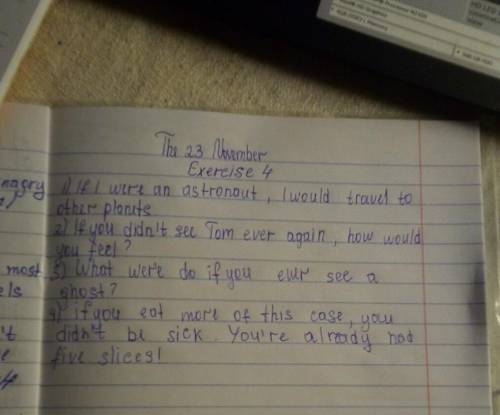 The 23 November
Exercise 4
1) If I were an astronaut, I would travel to
other planets
2) If you didn't see Tom ever again, how would
you feel?
3) What were do if you ever see a
ghost?
4) if you eat more of this case, you
didn't be sick. You're already had
five slices!
most